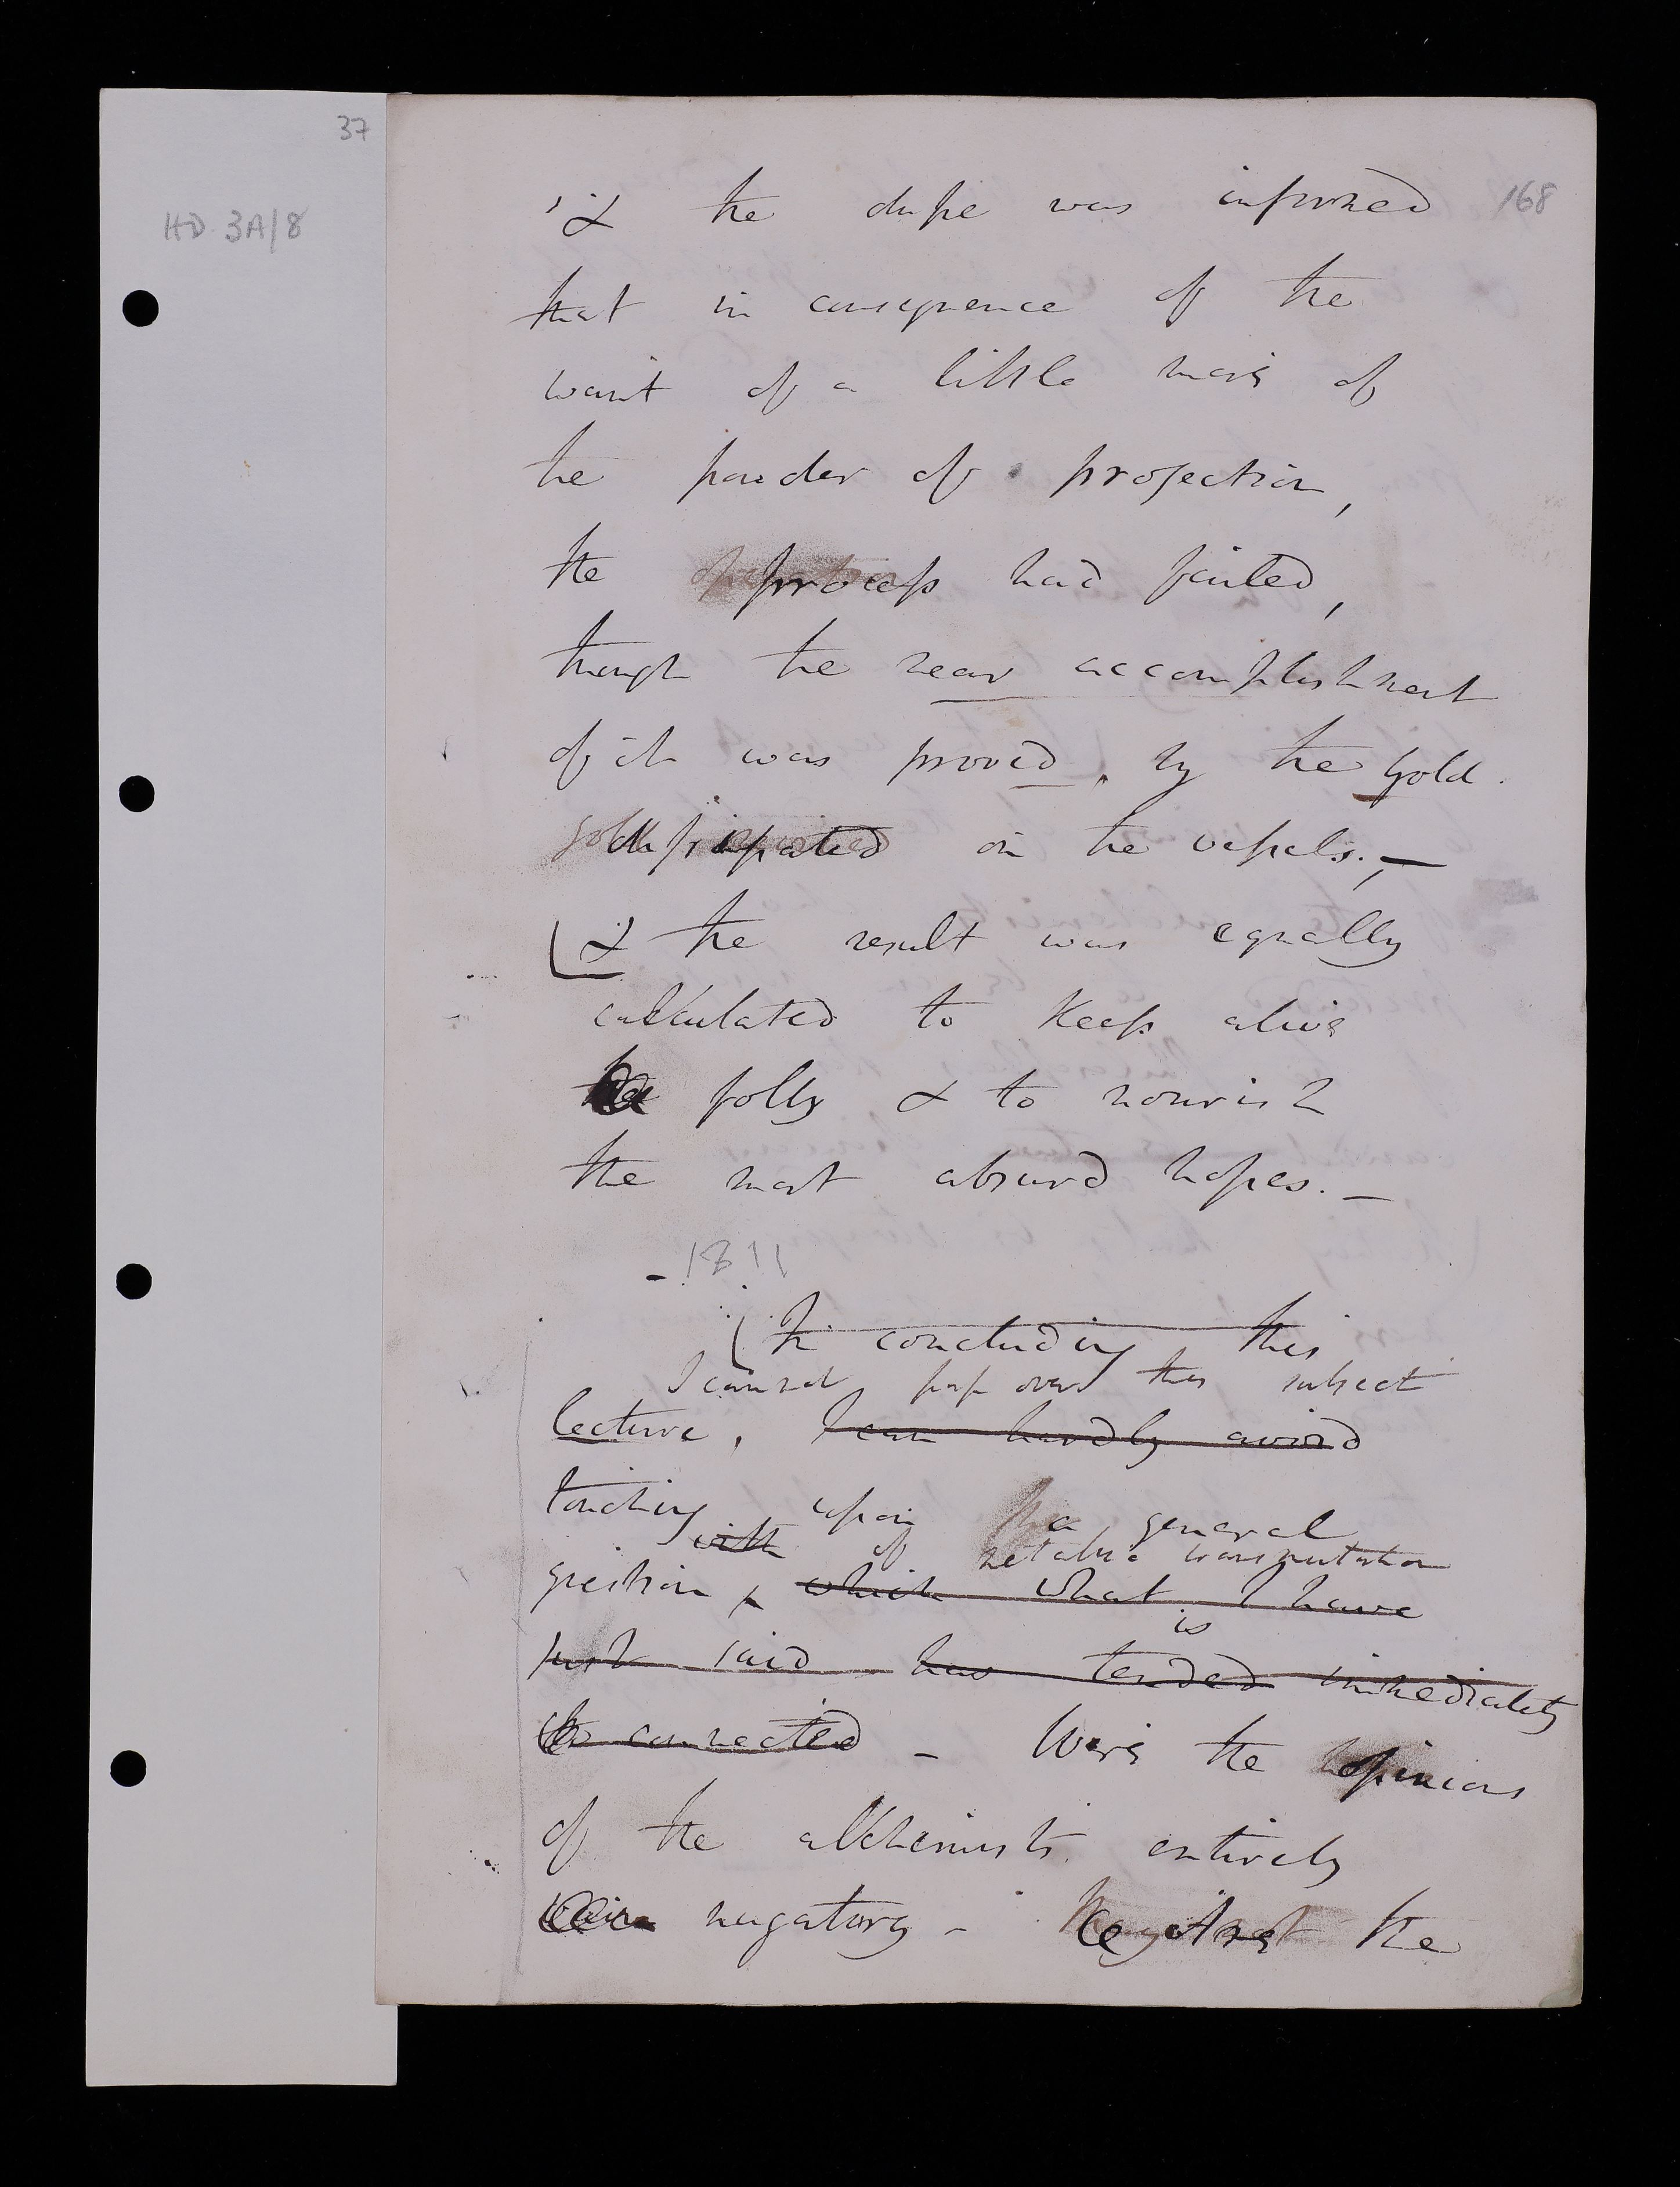 37
HD 3A/8
168
& the dupe was informed
that in consequence of the
want of a little more of
the powder of projection,
the process had failed,
though the near accomplishment
of it was proved, by the gold
in the vessels. —
& the result was equally
calculated to keep alive
folly & to nourish
the most absurd hopes. —
- 1811
(In concluding this
I cannot pass over this subject
lecture, I can hardly avoid
touching upon the general
with of metallic transmutation
question, which what I have
is
just said has tended immediately
connected - Were the opinions
of the alchemists entirely
nugatory - the